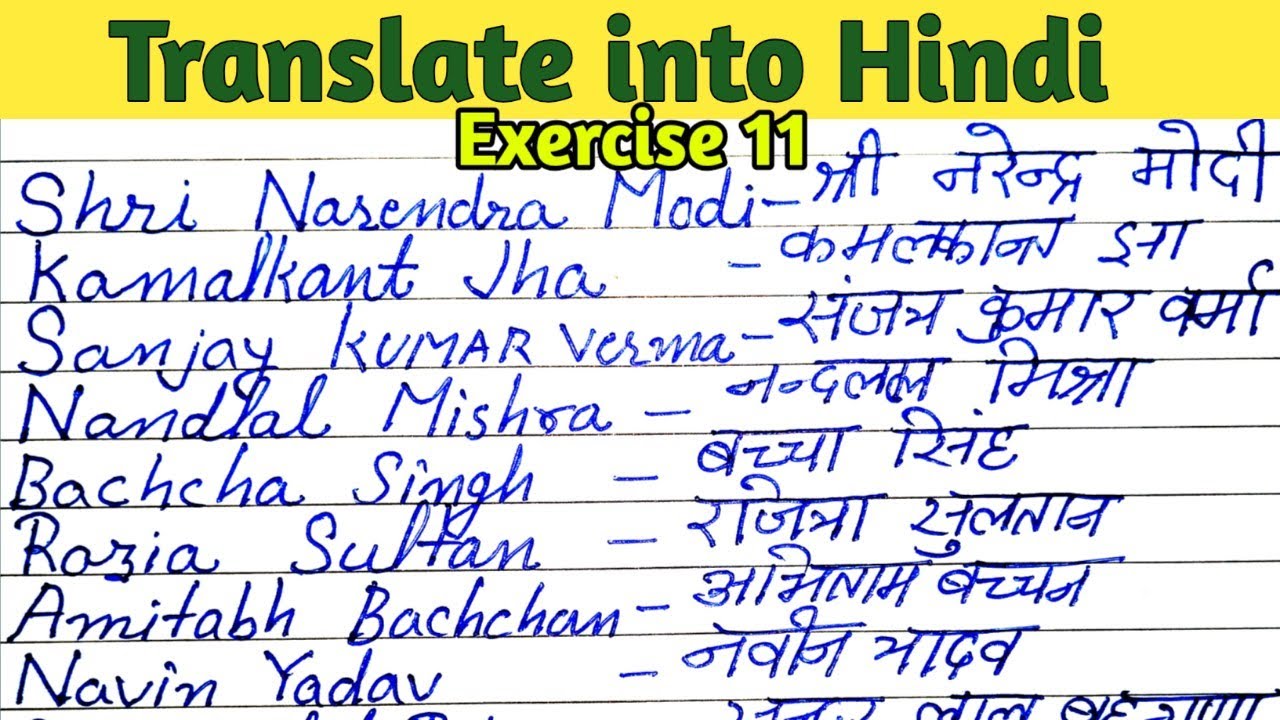 Translate into Hindi
Exercise 11
Shri Narendra Modi - श्री नरेन्द्र मोदी
Kamalkant Jha - कमलकान्त झा
Sanjay KUMAR Verma - संजय कुमार वर्मा
Nandlal Mishra - नन्दलाल मिश्रा
Bachcha Singh - बच्चा सिंह
Razia Sultan - रजिया सुल्तान
Amitabh Bachchan - अमिताभ बच्चन
Navin Yadav - नवीन यादव
लाल